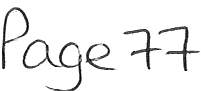 Page 77